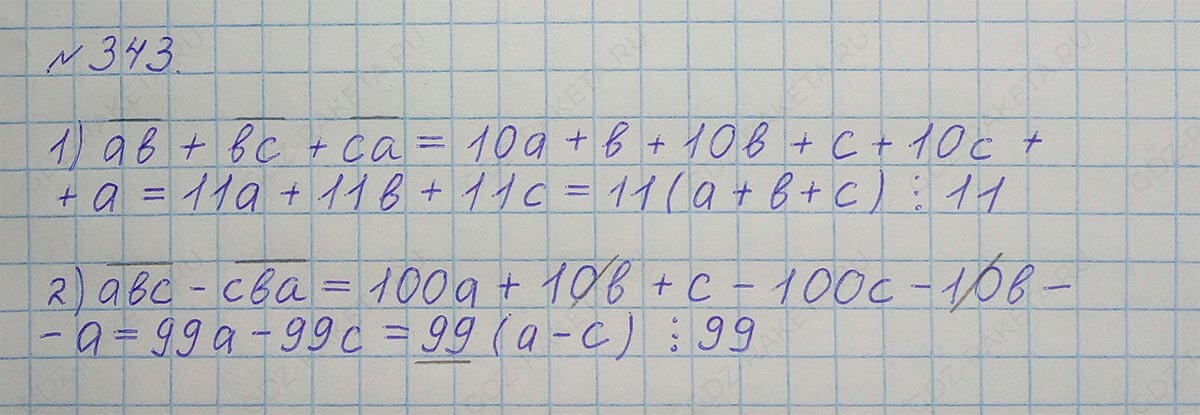 № 343.
1) a̅b̅ + b̅c̅ + c̅a̅ = 10a + b + 10b + c + 10c +
+ a = 11a + 11b + 11c = 11(a + b + c) ⋮ 11
2) a̅b̅c̅ - c̅b̅a̅ = 100a + 10b + c - 100c - 10b -
- a = 99a - 99c = 99 (a - c) ⋮ 99